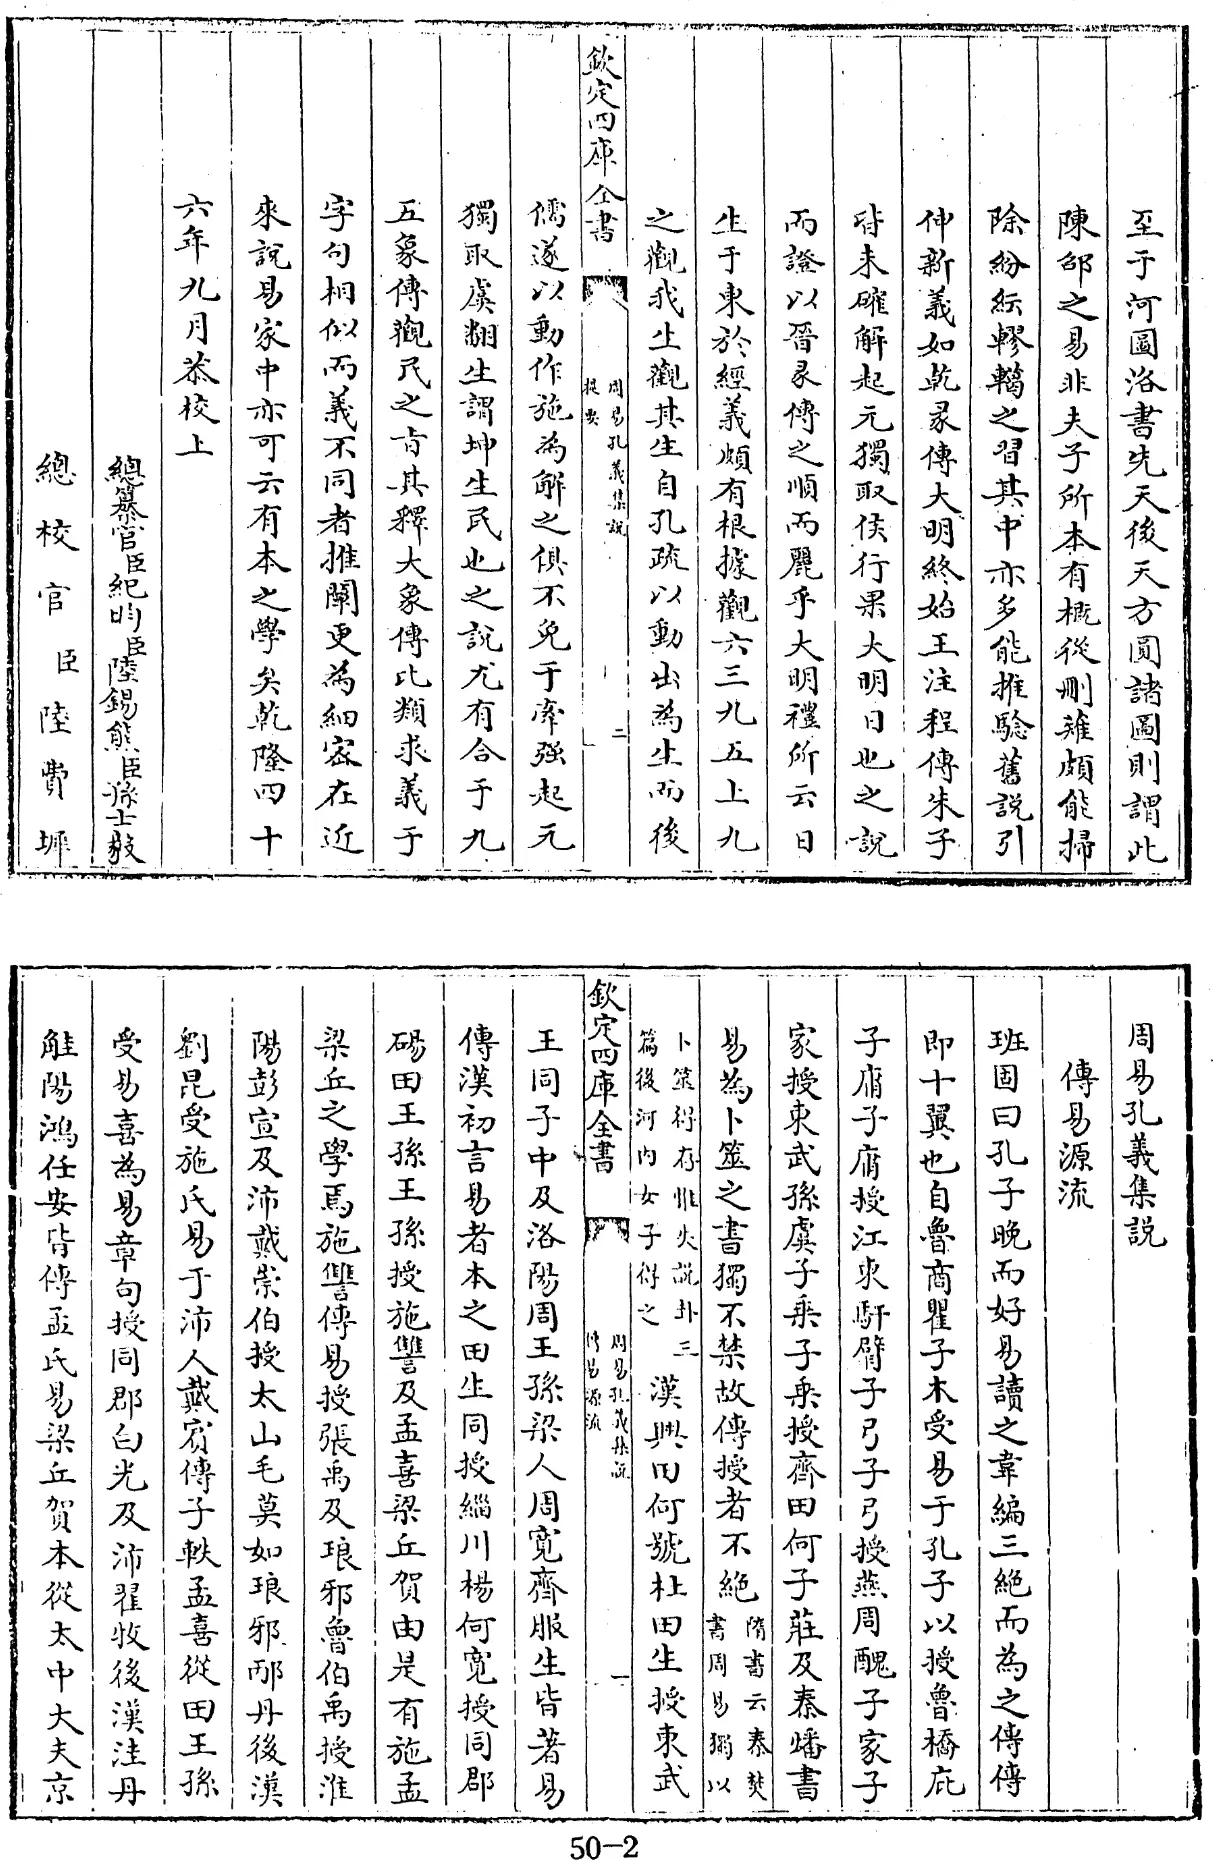 至于河圖洛書先天後天方圓諸圖則謂此
陳邵之易非夫子所本有概從刪薙頗能掃
除紛紜轇轕之習其中亦多能推驗舊説引
伸新義如乾彖傳大明終始王注程傳朱子
皆未確解起元獨取侯行果大明日也之說
而證以晉彖傳之順而麗乎大明禮所云日
生于東於經義頗有根據觀六三九五上九
之觀我生觀其生自孔疏以動出為生而後
欽定四庫全書
周易孔義集說
提要
二
儒遂以動作施為解之俱不免于牽强起元
獨取虞翻生謂坤生民也之說尤有合于九
五象傳觀民之旨其釋大象傳比類求義于
字句相似而義不同者推闡更為細密在近
來說易家中亦可云有本之學矣乾隆四十
六年九月恭校上
總纂官臣紀昀臣陸錫熊臣孫士毅
總校官臣陸費墀
周易孔義集説
傳易源流
班固曰孔子晚而好易讀之韋編三絶而為之傳傳
即十翼也自魯商瞿子木受易于孔子以授魯橋庇
子庸子庸授江東馯臂子弓子弓授燕周醜子家子
家授東武孫虞子乘子乘授齊田何子莊及秦燔書
易為卜筮之書獨不禁故傳授者不絶隋書云秦焚
書周易獨以
卜筮得存惟失説卦三
篇後河内女子得之
漢興田何號杜田生授東武
欽定四庫全書
周易孔義集說
傳易源流
一
王同子中及洛陽周王孫梁人周寛齊服生皆著易
傳漢初言易者本之田生同授緇川楊何寛授同郡
碭田王孫王孫授施讐及孟喜梁丘賀由是有施孟
梁丘之學焉施讐傳易授張禹及琅邪魯伯禹授淮
陽彭宣及沛戴崇伯授太山毛莫如琅邪邴丹後漢
劉昆受施氏易于沛人戴賓傳子軼孟喜從田王孫
受易喜為易章句授同郡白光及沛翟牧後漢洼丹
觟陽鴻任安皆傳孟氏易梁丘賀本從太中大夫京
50-2